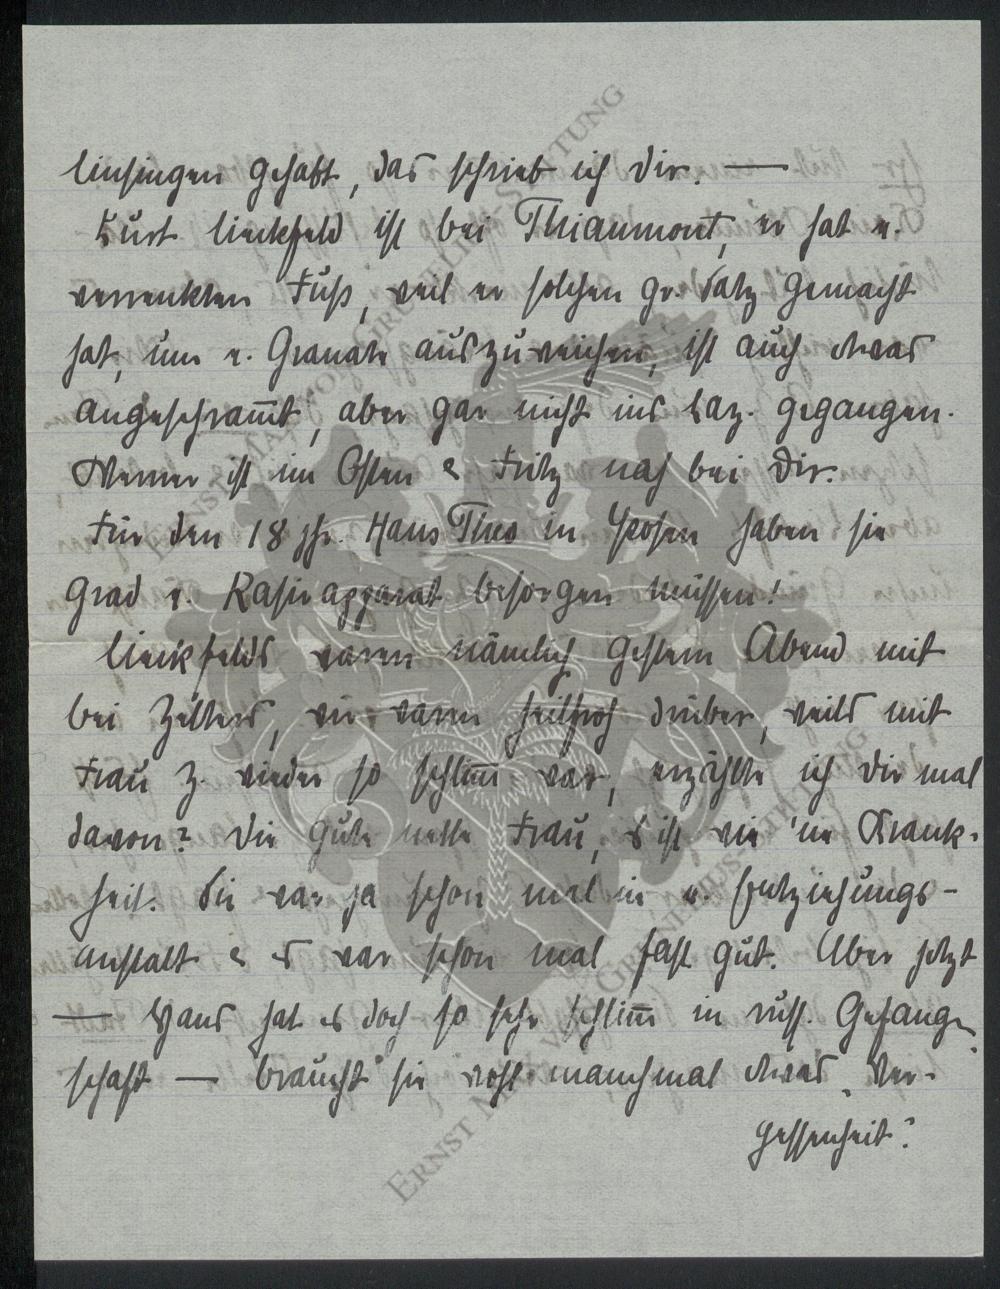 Linsingen gehabt, das schrieb ich Dir. —
Kurt Linckfeld ist bei Thiaumont, er hat e.
verrenkten Fuß, weil er solchen gr. Satz gemacht
hat, um e. Granate auszuweichen, ist auch etwas
angeschram̄t, aber gar nicht ins Laz. gegangen.
Werner ist im Osten & Fritz nah bei Dir.
Für den 18 jhr. Hans Theo in Posen haben sie
grad e. Rasierapparat besorgen müssen!
Linckfelds waren nämlich gestern Abend mit
bei Zelters, wir waren heilfroh drüber, weils mit
Frau Z. wieder so schlim̄ war, erzählte ich Dir mal
davon? Die gute nette Frau, es ist wie 'ne Krank-
heit. Sie war ja schon mal in e. Entziehungs-
anstalt & es war schon mal fast gut. Aber jetzt
— Hans hat es doch so sehr schlim̄ in russ. Gefang.
schaft — braucht sie wohl manchmal etwas „Ver-
gessenheit“?
ERNST MAYOR GREUBLIN-STIFTUNG